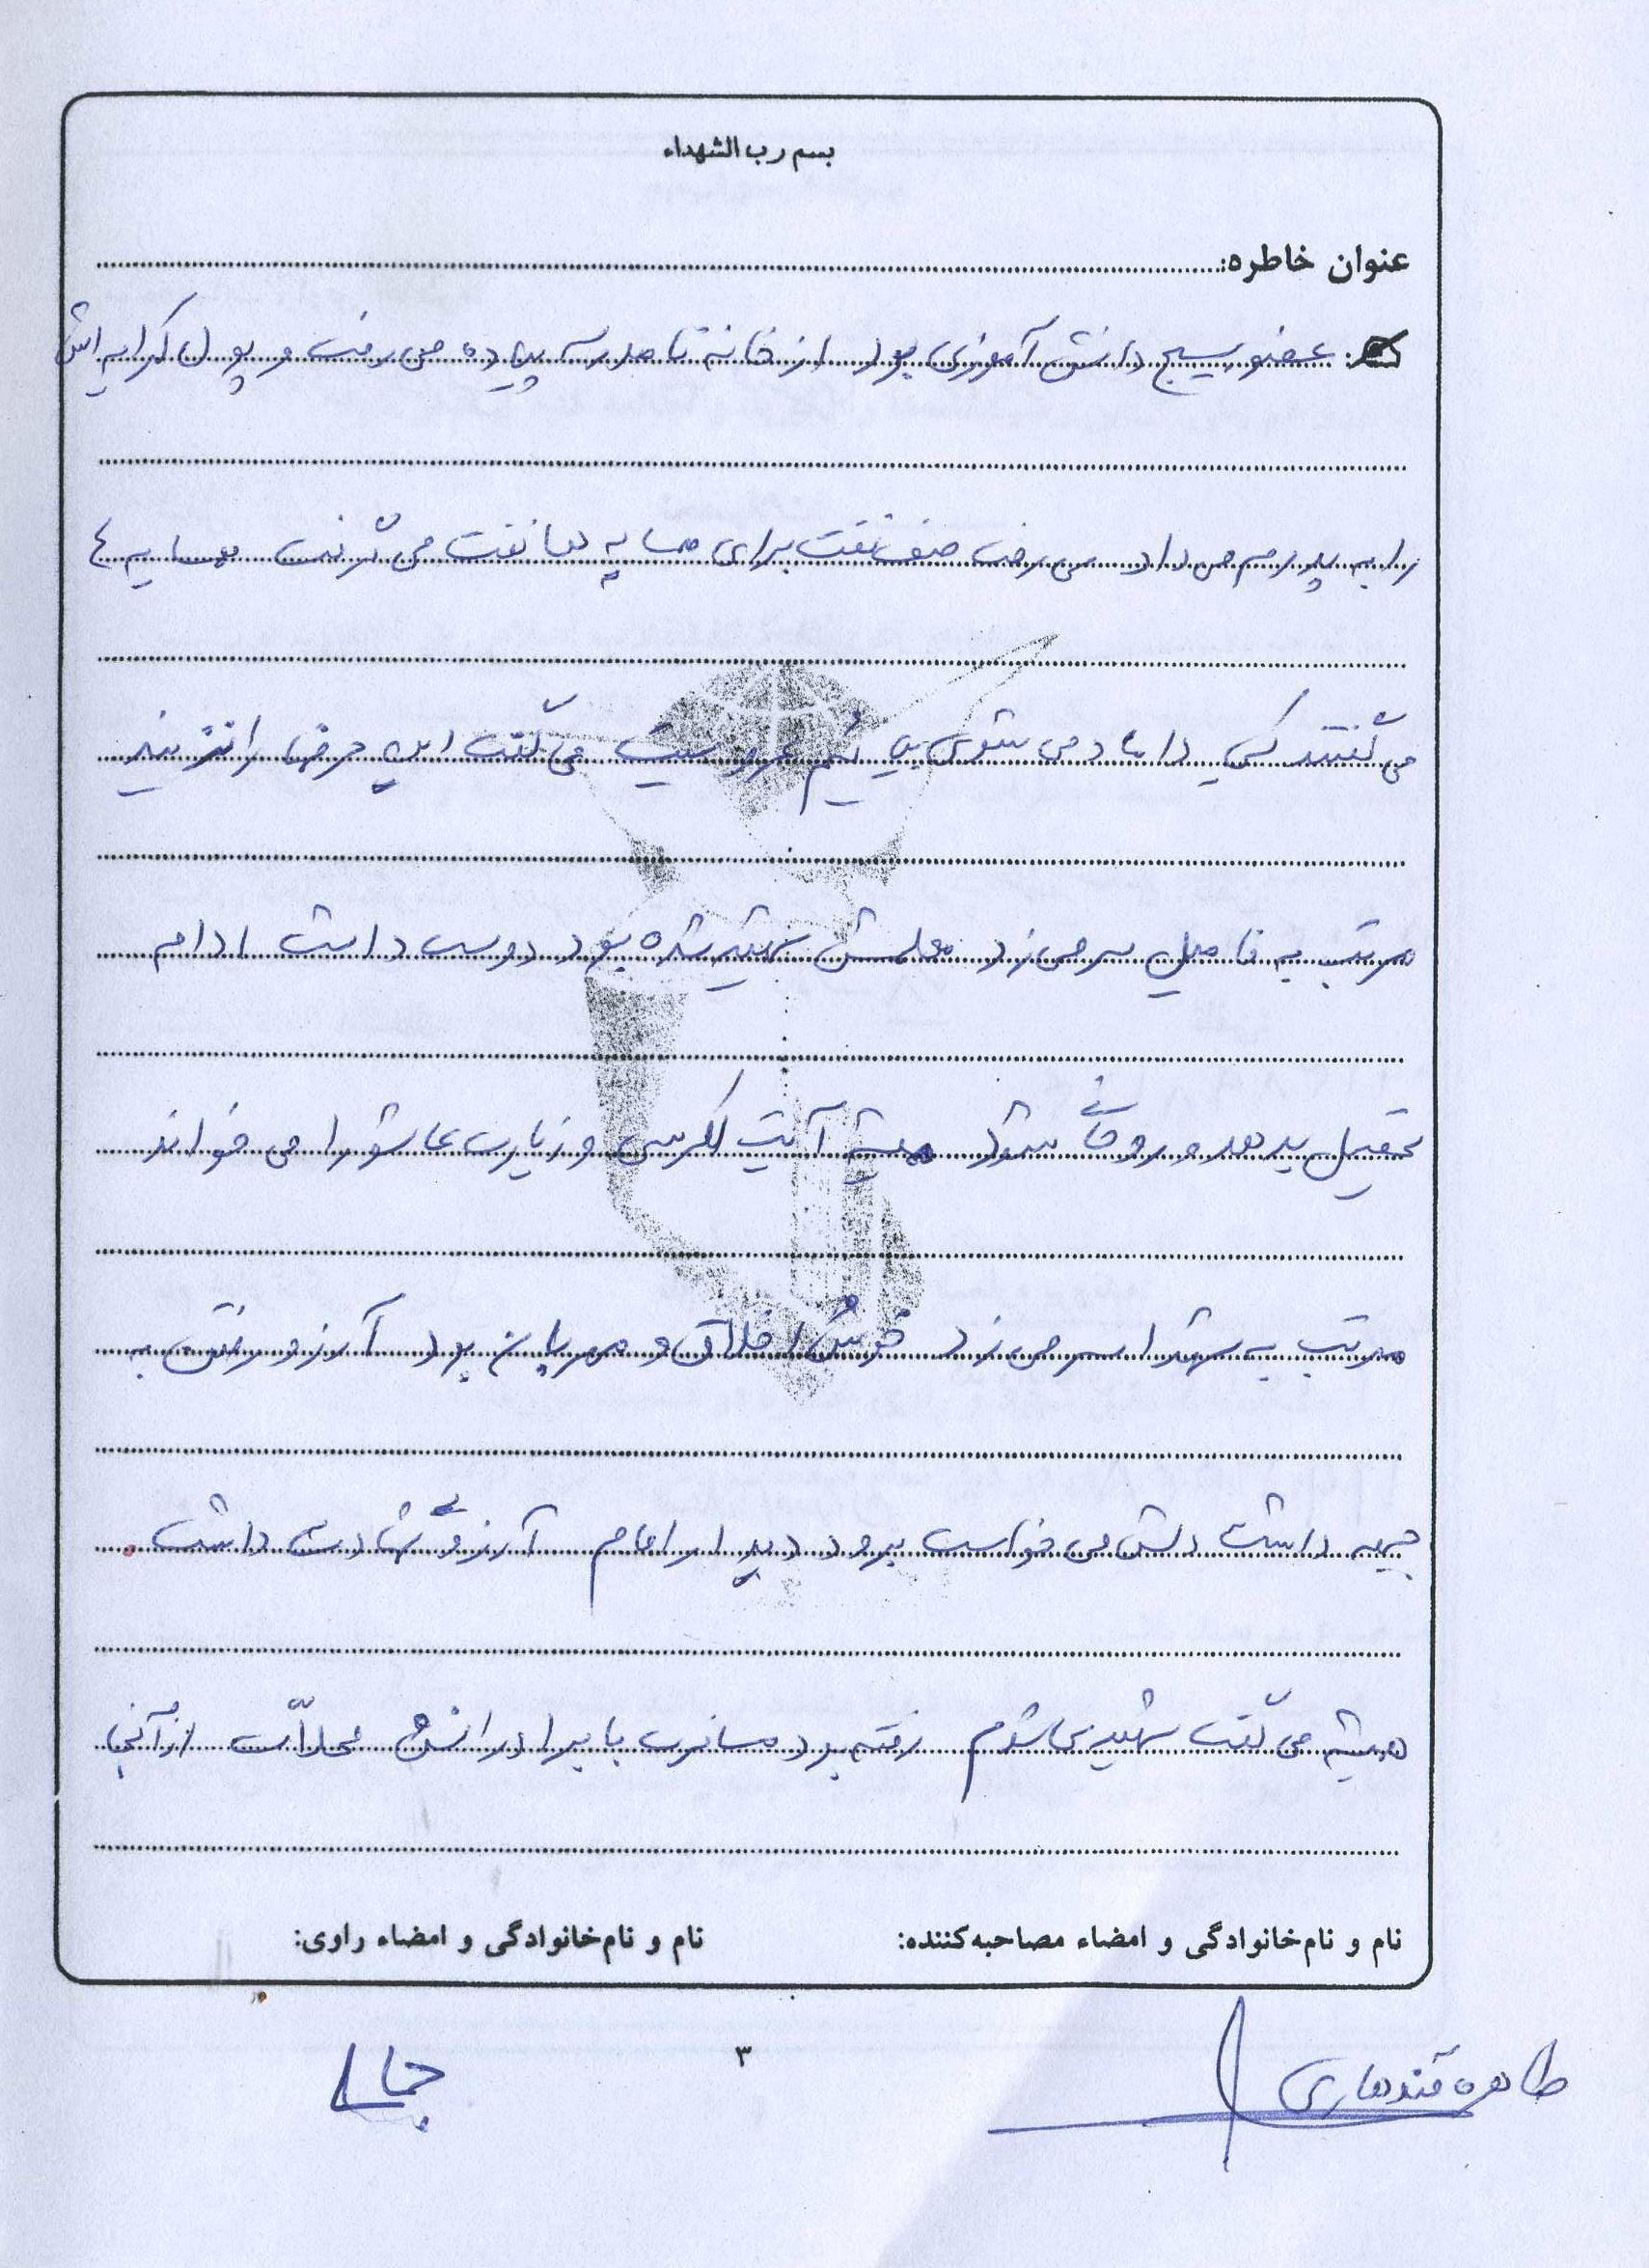 بسم رب الشهداء
عنوان خاطره:
عضو بسیج دانش آموزی بود از خانه تا مدرسه پیاده می رفت و پول کرایه اش
را به پدرم می داد می رفت صف نفت برای همسایه ها نفت می گرفت همسایه
می گفتند کی داماد می شوی بیایم عروسیت می گفت این حرفها را نزنید
مرتب به فامیل سر می زد معلمش شهید شده بود دوست داشت ادامه
تحصیل بدهد و روحانی شود همیشه آیت الکرسی و زیارت عاشورا می خواند
مرتب به شهدا سر می زد خوش اخلاق و مهربان بود آرزو رفتن به
جبهه داشت دلش می خواست برود دیدار امام آرزوی شهادت داشت.
همیشه می گفت شهید می شوم رفته بود مسافرت با برادرانش محلات از آنجا
نام و نام‌خانوادگی و امضاء مصاحبه‌کننده:
نام و نام‌خانوادگی و امضاء راوی:
طاهره قندهاری
۳